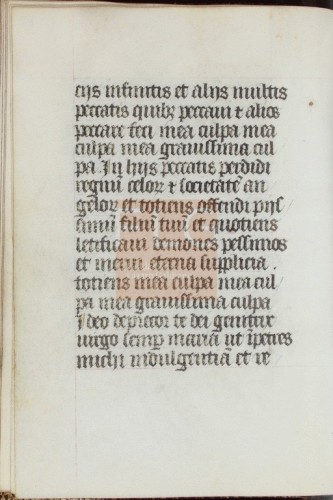 cijs infinitis et alijs multis
peccatis quibꝫ peccaui ⁊ alios
peccare feci mea culpa mea
culpa mea grauissima cul
pa. In hijs peccatis perdidi
regnū celoꝝ ⁊ societatē an
geloꝝ et totiens offendi pijs
simū filiū tuū et quotiens
letificaui demones pessimos
et merui eterna supplicia .
totiens mea culpa mea cul
pa mea grauissima culpa
Ideo deprecor te dei genitrix
uirgo semꝑ maria ut īpetres
michi indulgentiā et re